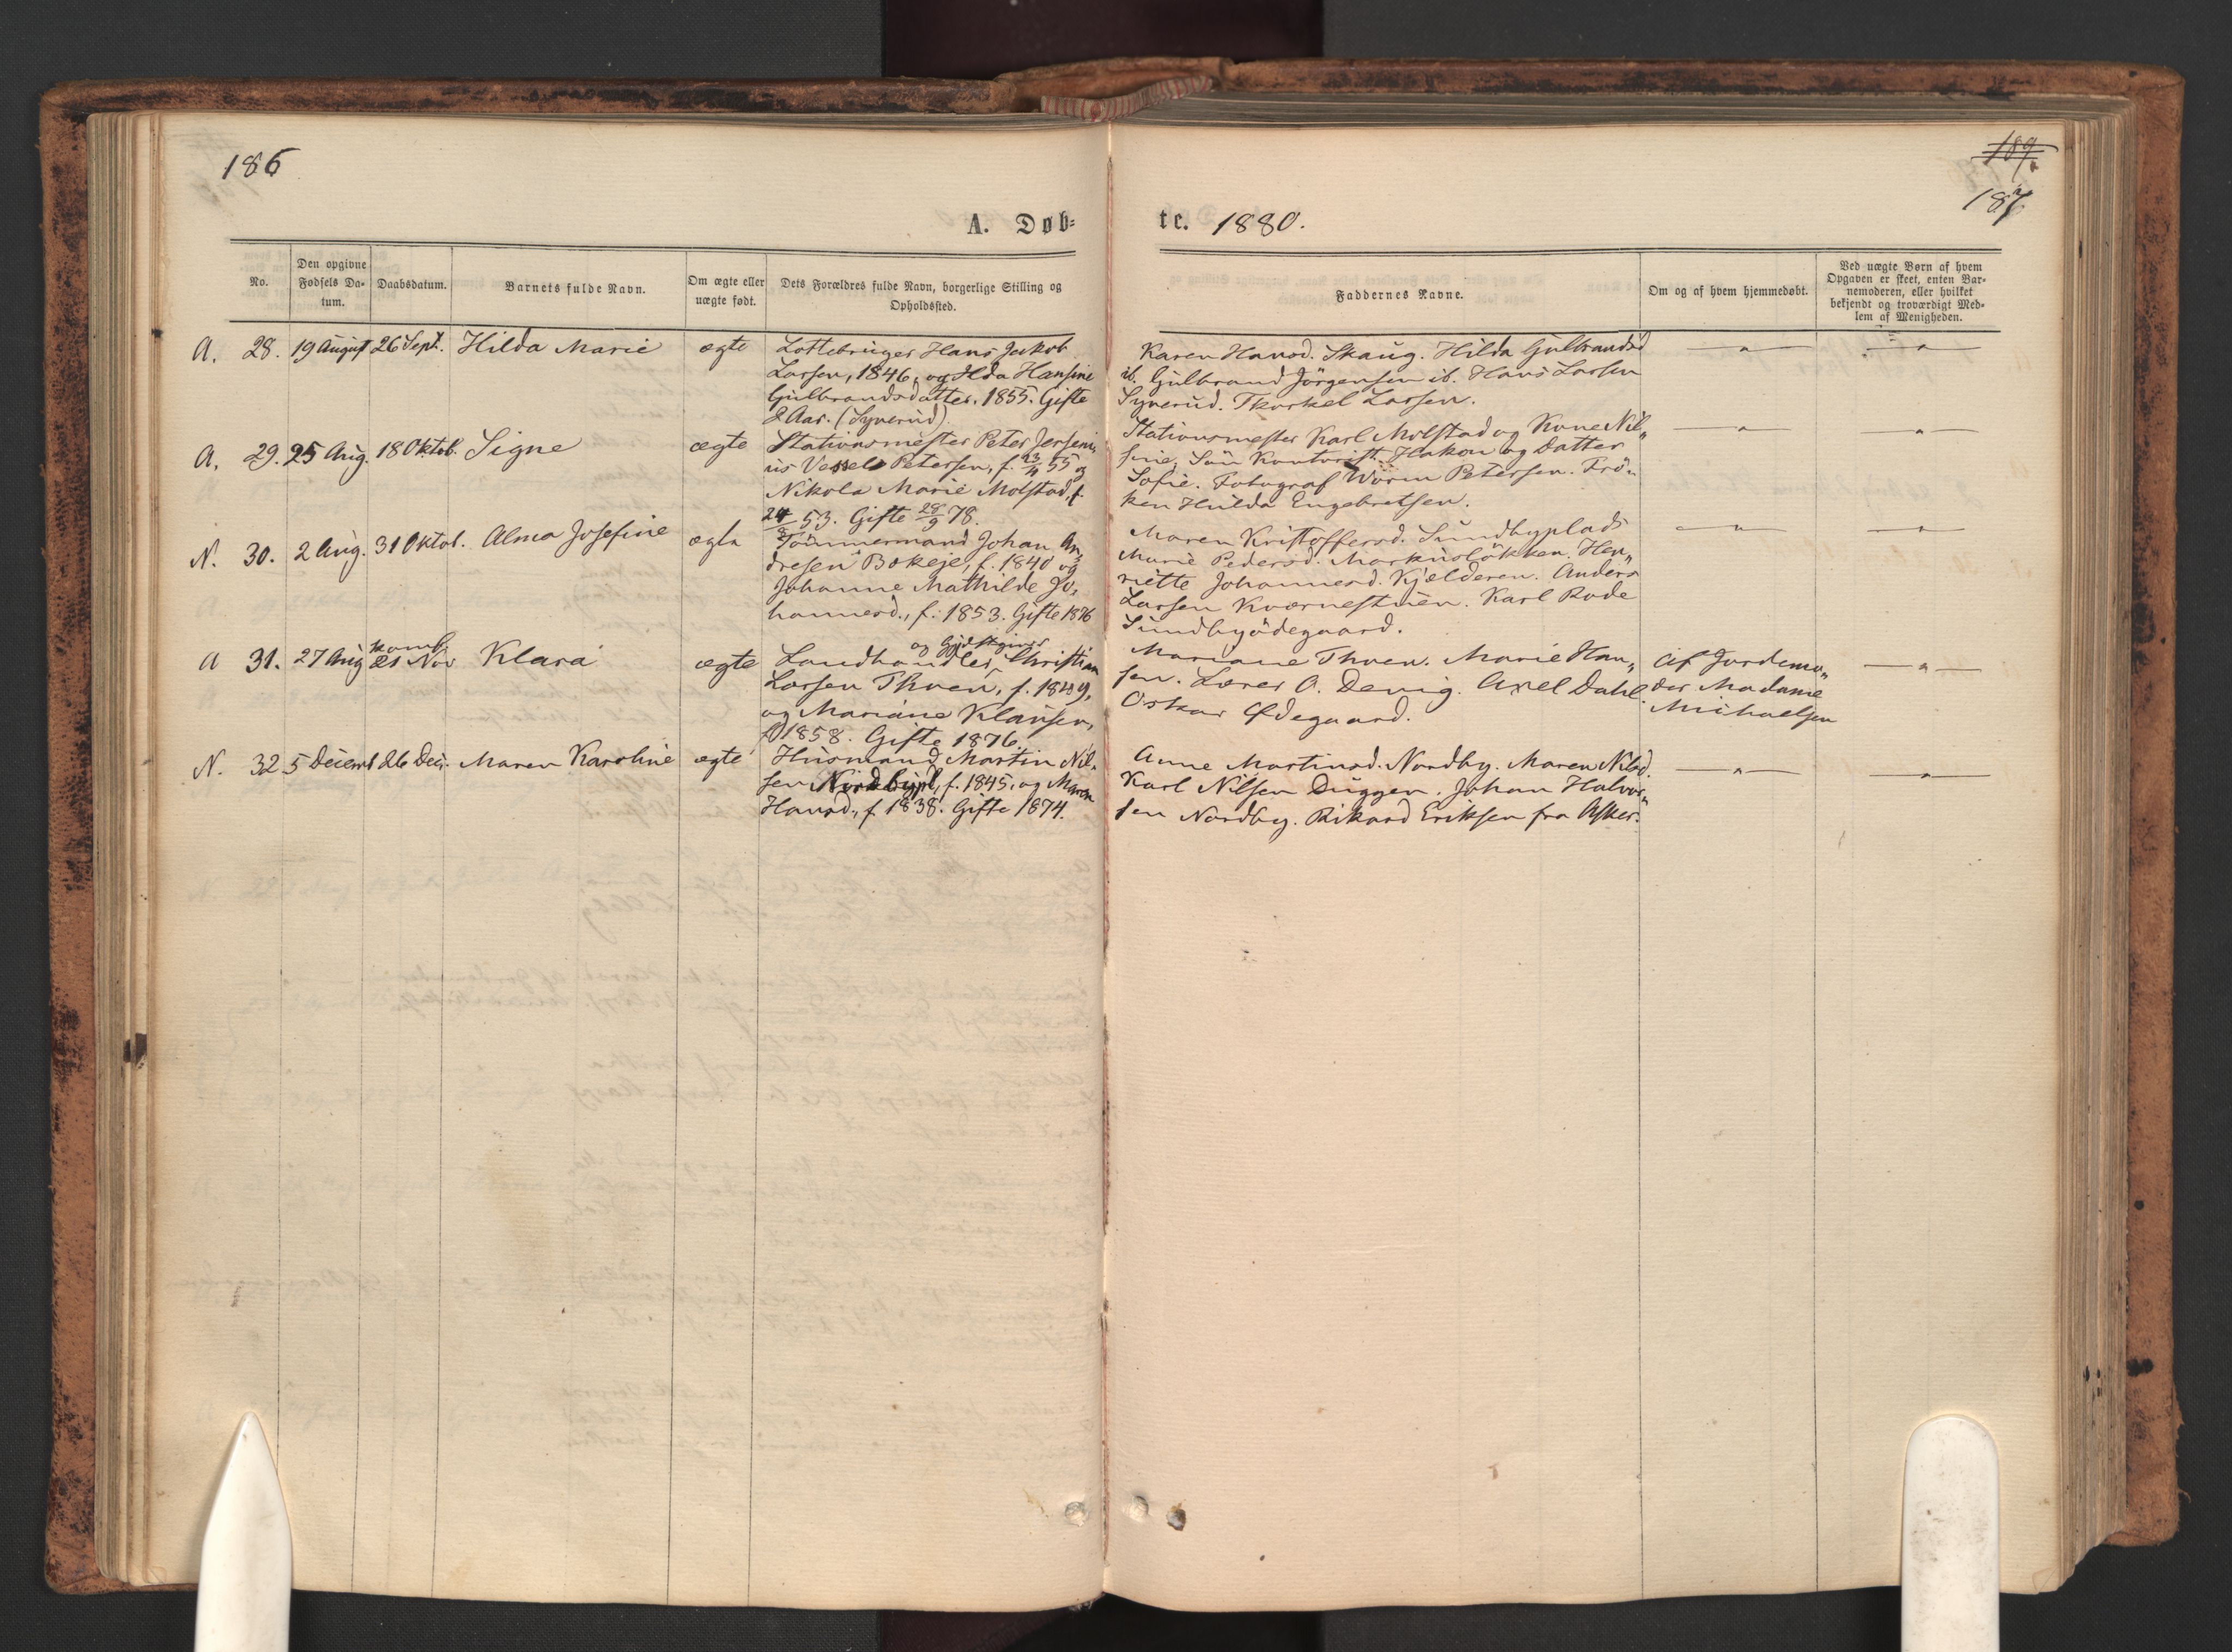 186
189.
187
A. Døb-
te. 1880.
No.
Den opgivne
Fødsels Da-
tum.
Daabsdatum.
Barnets fulde Navn.
Om ægte eller
uægte født.
Dets Forældres fulde Navn, borgerlige Stilling og
Opholdssted.
Faddernes Navne.
Om og af hvem hjemmedøbt.
Ved uægte Børn af hvem
Opgaven er skeet, enten Bar-
nemoderen, eller hvilket
bekjendt og troværdigt Med-
lem af Menigheden.
A. 28. 19 August 26 Sept. Hilda Marie ægte
Lottebruger Hans Jakob
Larsen, 1846, og Ilda Hansine
Gulbrandsdatter. 1855. Gifte
2 Aar. (Synerud)
Karen Hansd. Skaug. Hilda Gulbrandsd
ib. Gulbrand Jörgensen ib. Hans Larsen
Synerud. Thorkel Larsen.
— " — — " —
A. 29. 25 Aug. 18 Oktob. Signe ægte
Stationsmester Peter Jerseni„
us Vessel Petersen, f. 23/4 55 og
Nikola Marie Molstad, f.
24/8 53. Gifte 28/9 78.
Stationsmester Karl Molstad og Kone Nil„
sine, Sön Kontorist Hakon og Datter
Sofie. Fotograf Worm Petersen. Frö„
ken Hulda Engebretsen.
— " — — " —
N. 30. 2 Aug. 31 Oktob. Alma Josefine ægte
Tömmermand Johan An„
dresen Bokeje, f. 1840 og
Johanne Mathilde Jo„
hannesd., f. 1853. Gifte 1876
Maren Kristoffersd. Sundbyplads
Marie Pedersd. Markuslökken. Hen„
riette Johannesd. Kjelderen. Anders
Larsen Kvernestuen. Karl Rode
Sundbyödegaard.
— " — — " —
A 31. 27 Aug 21 Nov Klara ægte
og Gjestgiver
Landhandler, Christian
Larsen Thuen, f. 1849,
og Mariane Klausen,
f 1858. Gifte 1876.
Mariane Thuen. Marie Han„
sen. Lærer O. Devig. Axel Dahl.
Oskar Ødegaard.
Af Jordemo„
der Madame
Michaelsen
— " —
N. 32 5 Decemb 26 Dec. Maren Karoline ægte
Husmand Martin Nil„
sen Nordbypl, f. 1845, og Maren
Hansd., f. 1838. Gifte 1874.
Anne Martinsd. Nordby. Maren Nilsd.
Karl Nilsen Duggen. Johan Halvor„
sen Nordby. Rikard Eriksen fra Asker.
— " — — " —